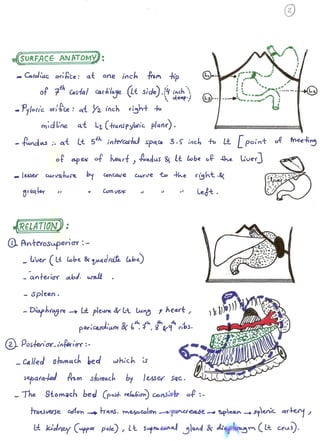 2
SURFACE ANATOMY :
- Cardiac orifice : at one inch from tip
of 7th Costal cartilage (Lt side). (4 inch deep.)
- Pyloric orifice : at ½ inch right to
midline at L1 (transpyloric plane).
- fundus : at Lt 5th intercostal space 3.5 inch to Lt [point of meeting
of apex of heart, fundus & Lt lobe of the liver]
- lesser curvature by concave curve to the right &
greater " " convex " " " left.
RELATION :
① Anterosuperior :-
- Liver (Lt lobe & quadrate lobe)
- anterior abd. wall
- spleen.
- Diaphragm → Lt pleura & Lt Lung, heart,
pericardium & 6th, 7th, 8th & 9th ribs.
②. Posterior.inferior :-
- Called stomach bed which is
separated from stomach by lesser sac.
- The Stomach bed (post. relation) consists of :-
transverse colon → trans. mesocolon → pancrease → spleen → splenic artery,
Lt kidney (upper pole), Lt suprarenal gland & diaphragm (Lt crus).